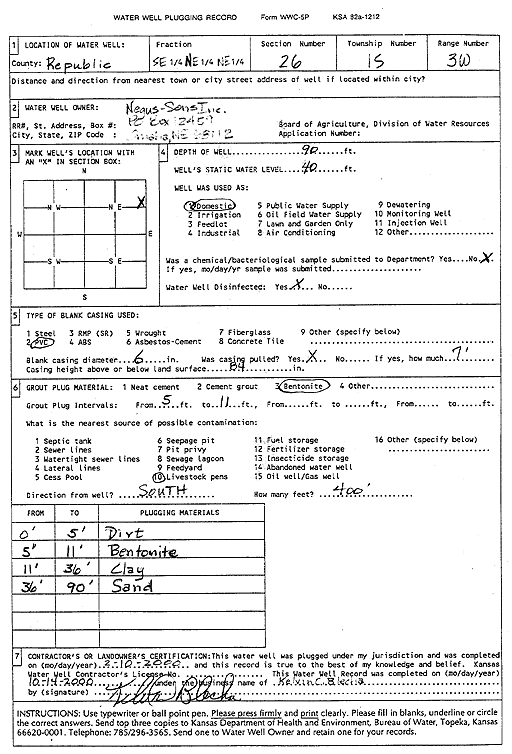 WATER WELL PLUGGING RECORD Form WWC-5P KSA 82a-1212
1 LOCATION OF WATER WELL: Fraction Section Number Township Number Range Number
County: Republic SE 1/4 NE 1/4 NE 1/4 26 1S 3W
Distance and direction from nearest town or city street address of well if located within city?
2 WATER WELL OWNER: Negus-Sons Inc.
RR#, St. Address, Box #: PO Box 12457 Board of Agriculture, Division of Water Resources
City, State, ZIP Code : Omaha, NE 68112 Application Number:
3 MARK WELL'S LOCATION WITH AN "X" IN SECTION BOX:
N
N W N E X
W E
S W S E
S
4 DEPTH OF WELL 90 ft.
WELL'S STATIC WATER LEVEL 40 ft.
WELL WAS USED AS:
1 Domestic 5 Public Water Supply 9 Dewatering
2 Irrigation 6 Oil Field Water Supply 10 Monitoring Well
3 Feedlot 7 Lawn and Garden Only 11 Injection Well
4 Industrial 8 Air Conditioning 12 Other
Was a chemical/bacteriological sample submitted to Department? Yes....No. X
If yes, mo/day/yr sample was submitted
Water Well Disinfected: Yes X No
5 TYPE OF BLANK CASING USED:
1 Steel 3 RMP (SR) 5 Wrought 7 Fiberglass 9 Other (specify below)
2 PVC 4 ABS 6 Asbestos-Cement 8 Concrete Tile
Blank casing diameter 6 in. Was casing pulled? Yes X No If yes, how much 7'
Casing height above or below land surface 84 in.
6 GROUT PLUG MATERIAL: 1 Neat cement 2 Cement grout 3 Bentonite 4 Other
Grout Plug Intervals: From 5 ft. to 11 ft., From ft. to ft., From to ft.
What is the nearest source of possible contamination:
1 Septic tank 6 Seepage pit 11 Fuel storage 16 Other (specify below)
2 Sewer lines 7 Pit privy 12 Fertilizer storage
3 Watertight sewer lines 8 Sewage lagoon 13 Insecticide storage
4 Lateral lines 9 Feedyard 14 Abandoned water well
5 Cess Pool 10 Livestock pens 15 Oil well/Gas well
Direction from well? SOUTH How many feet? 400'
FROM TO PLUGGING MATERIALS
0' 5' Dirt
5' 11' Bentonite
11' 36' Clay
36' 90' Sand
7 CONTRACTOR'S OR LANDOWNER'S CERTIFICATION: This water well was plugged under my jurisdiction and was completed
on (mo/day/year) 2-10-2000 and this record is true to the best of my knowledge and belief. Kansas
Water Well Contractor's License No. This Water Well Record was completed on (mo/day/year)
10-14-2000 under the business name of Kelvin C. Blecha
by (signature)
INSTRUCTIONS: Use typewriter or ball point pen. Please press firmly and print clearly. Please fill in blanks, underline or circle
the correct answers. Send top three copies to Kansas Department of Health and Environment, Bureau of Water, Topeka, Kansas
66620-0001. Telephone: 785/296-3565. Send one to Water Well Owner and retain one for your records.